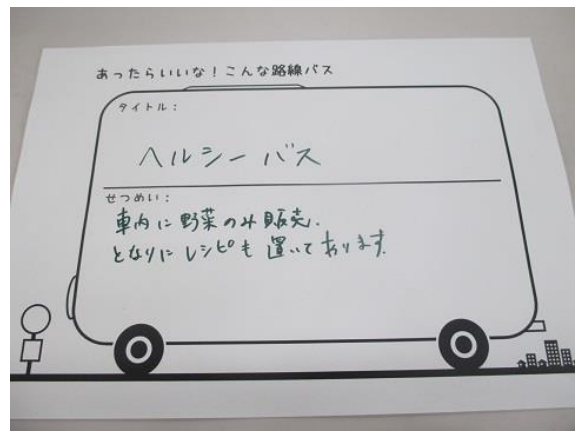 あったらいいな！こんな路線バス
タイトル：
ヘルシーバス
せつめい：
車内に野菜のみ販売.
となりにレシピも置いております.